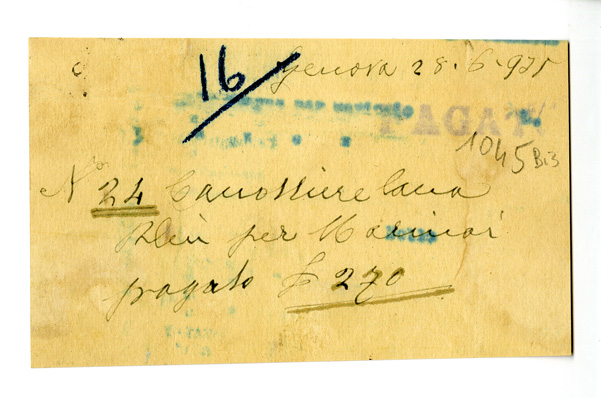 16
Genova 28·6·935
PAGAT
1045 Bis
N° 24 Canottiere lana
per Marinai
pagato £ 270